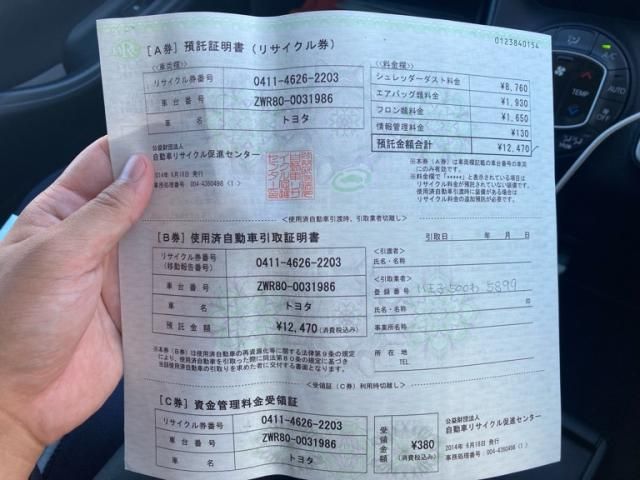 0123840154
[A券] 預託証明書 (リサイクル券)
<車両欄>
リサイクル券番号 0411-4626-2203
車台番号 ZWR80-0031986
車名 トヨタ
公益財団法人
自動車リサイクル促進センター
2014年 6月18日 発行
事務処理番号 004-4360498 (1)
<料金欄>
シュレッダーダスト料金 ¥8,760
エアバッグ類料金 ¥1,930
フロン類料金 ¥1,650
情報管理料金 ¥130
預託金額合計 ¥12,470
※本券(A券)は車両欄記載の車台番号の車両
にのみ有効です。
※料金欄で「*****」と表示されている項目は
リサイクル料金が預託されていない装備です。
使用済自動車引渡時に装備がある場合は
リサイクル料金の追加預託が必要です。
<使用済自動車引渡時、引取業者切離し>
[B券] 使用済自動車引取証明書
リサイクル券番号
(移動報告番号) 0411-4626-2203
車台番号 ZWR80-0031986
車名 トヨタ
預託金額 ¥12,470 (消費税込み)
※本券(B券)は使用済自動車の再資源化等に関する法律第9条の規定
により、使用済自動車を引取った際に同法第80条の規定に基づき
引取日: 年 月 日
<引渡者>
氏名・名称
<引取業者>
登録番号
5899
氏名・名称
事業所名
所在地
TEL
<受領証(C券)利用時切離し>
[C券] 資金管理料金受領証
リサイクル券番号 0411-4626-2203
車台番号 ZWR80-0031986
車名 トヨタ
受領金額 ¥380
(消費税込み)
公益財団法人
自動車リサイクル促進センター
2014年 6月18日 発行
事務処理番号 004-4360498 (1)
TEMP
AUTO